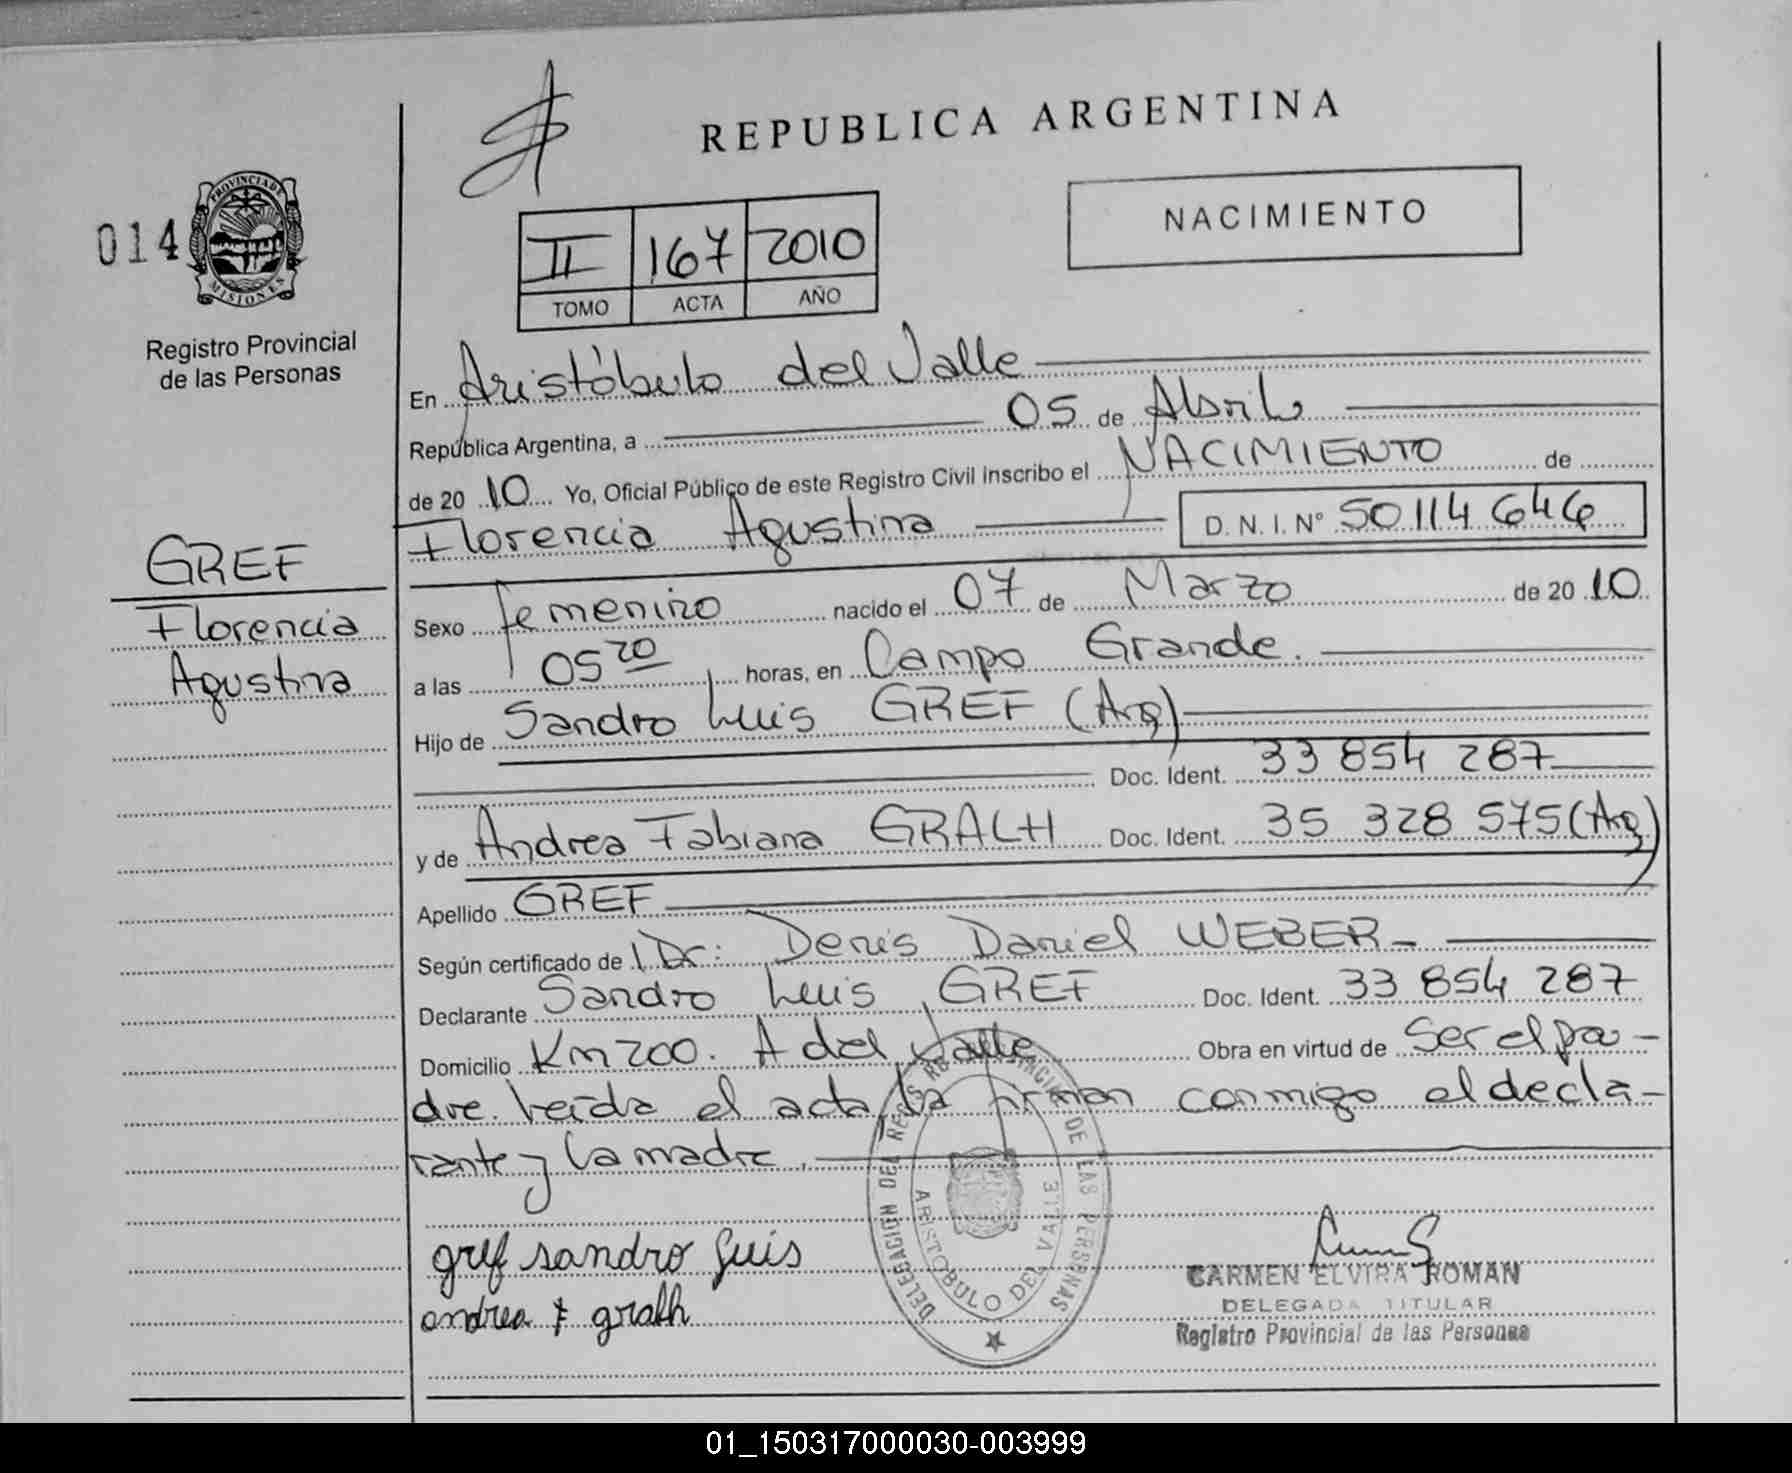 REPUBLICA ARGENTINA
NACIMIENTO
014
PROVINCIA DE MISIONES
Registro Provincial
de las Personas
II 167 2010
TOMO ACTA AÑO
En Aristóbulo del Valle
República Argentina, a 05 de Abril
de 20 10 Yo, Oficial Público de este Registro Civil Inscribo el NACIMIENTO de
Florencia Agustina D. N. I. Nº 50114646
GREF
Florencia
Agustina
Sexo femenino nacido el 07 de Marzo de 20 10
a las 05 20 horas, en Campo Grande.
Hijo de Sandro Luis GREF (Arg)
Doc. Ident. 33 854 287
y de Andrea Fabiana GRALH Doc. Ident. 35 328 575 (Arg)
Apellido GREF
Según certificado de Dr: Denis Daniel WEBER
Declarante Sandro Luis GREF Doc. Ident. 33 854 287
Domicilio Km 200. A del Valle Obra en virtud de Ser el pa-
dre. Leída el acta la firman conmigo el decla-
rante y la madre.
gref sandro luis
andrea f gralh
DELEGACIÓN DEL REGISTRO PROVINCIAL DE LAS PERSONAS
ARISTOBULO DEL VALLE
CARMEN ELVIRA ROMAN
DELEGADA TITULAR
Registro Provincial de las Personas
01_150317000030-003999